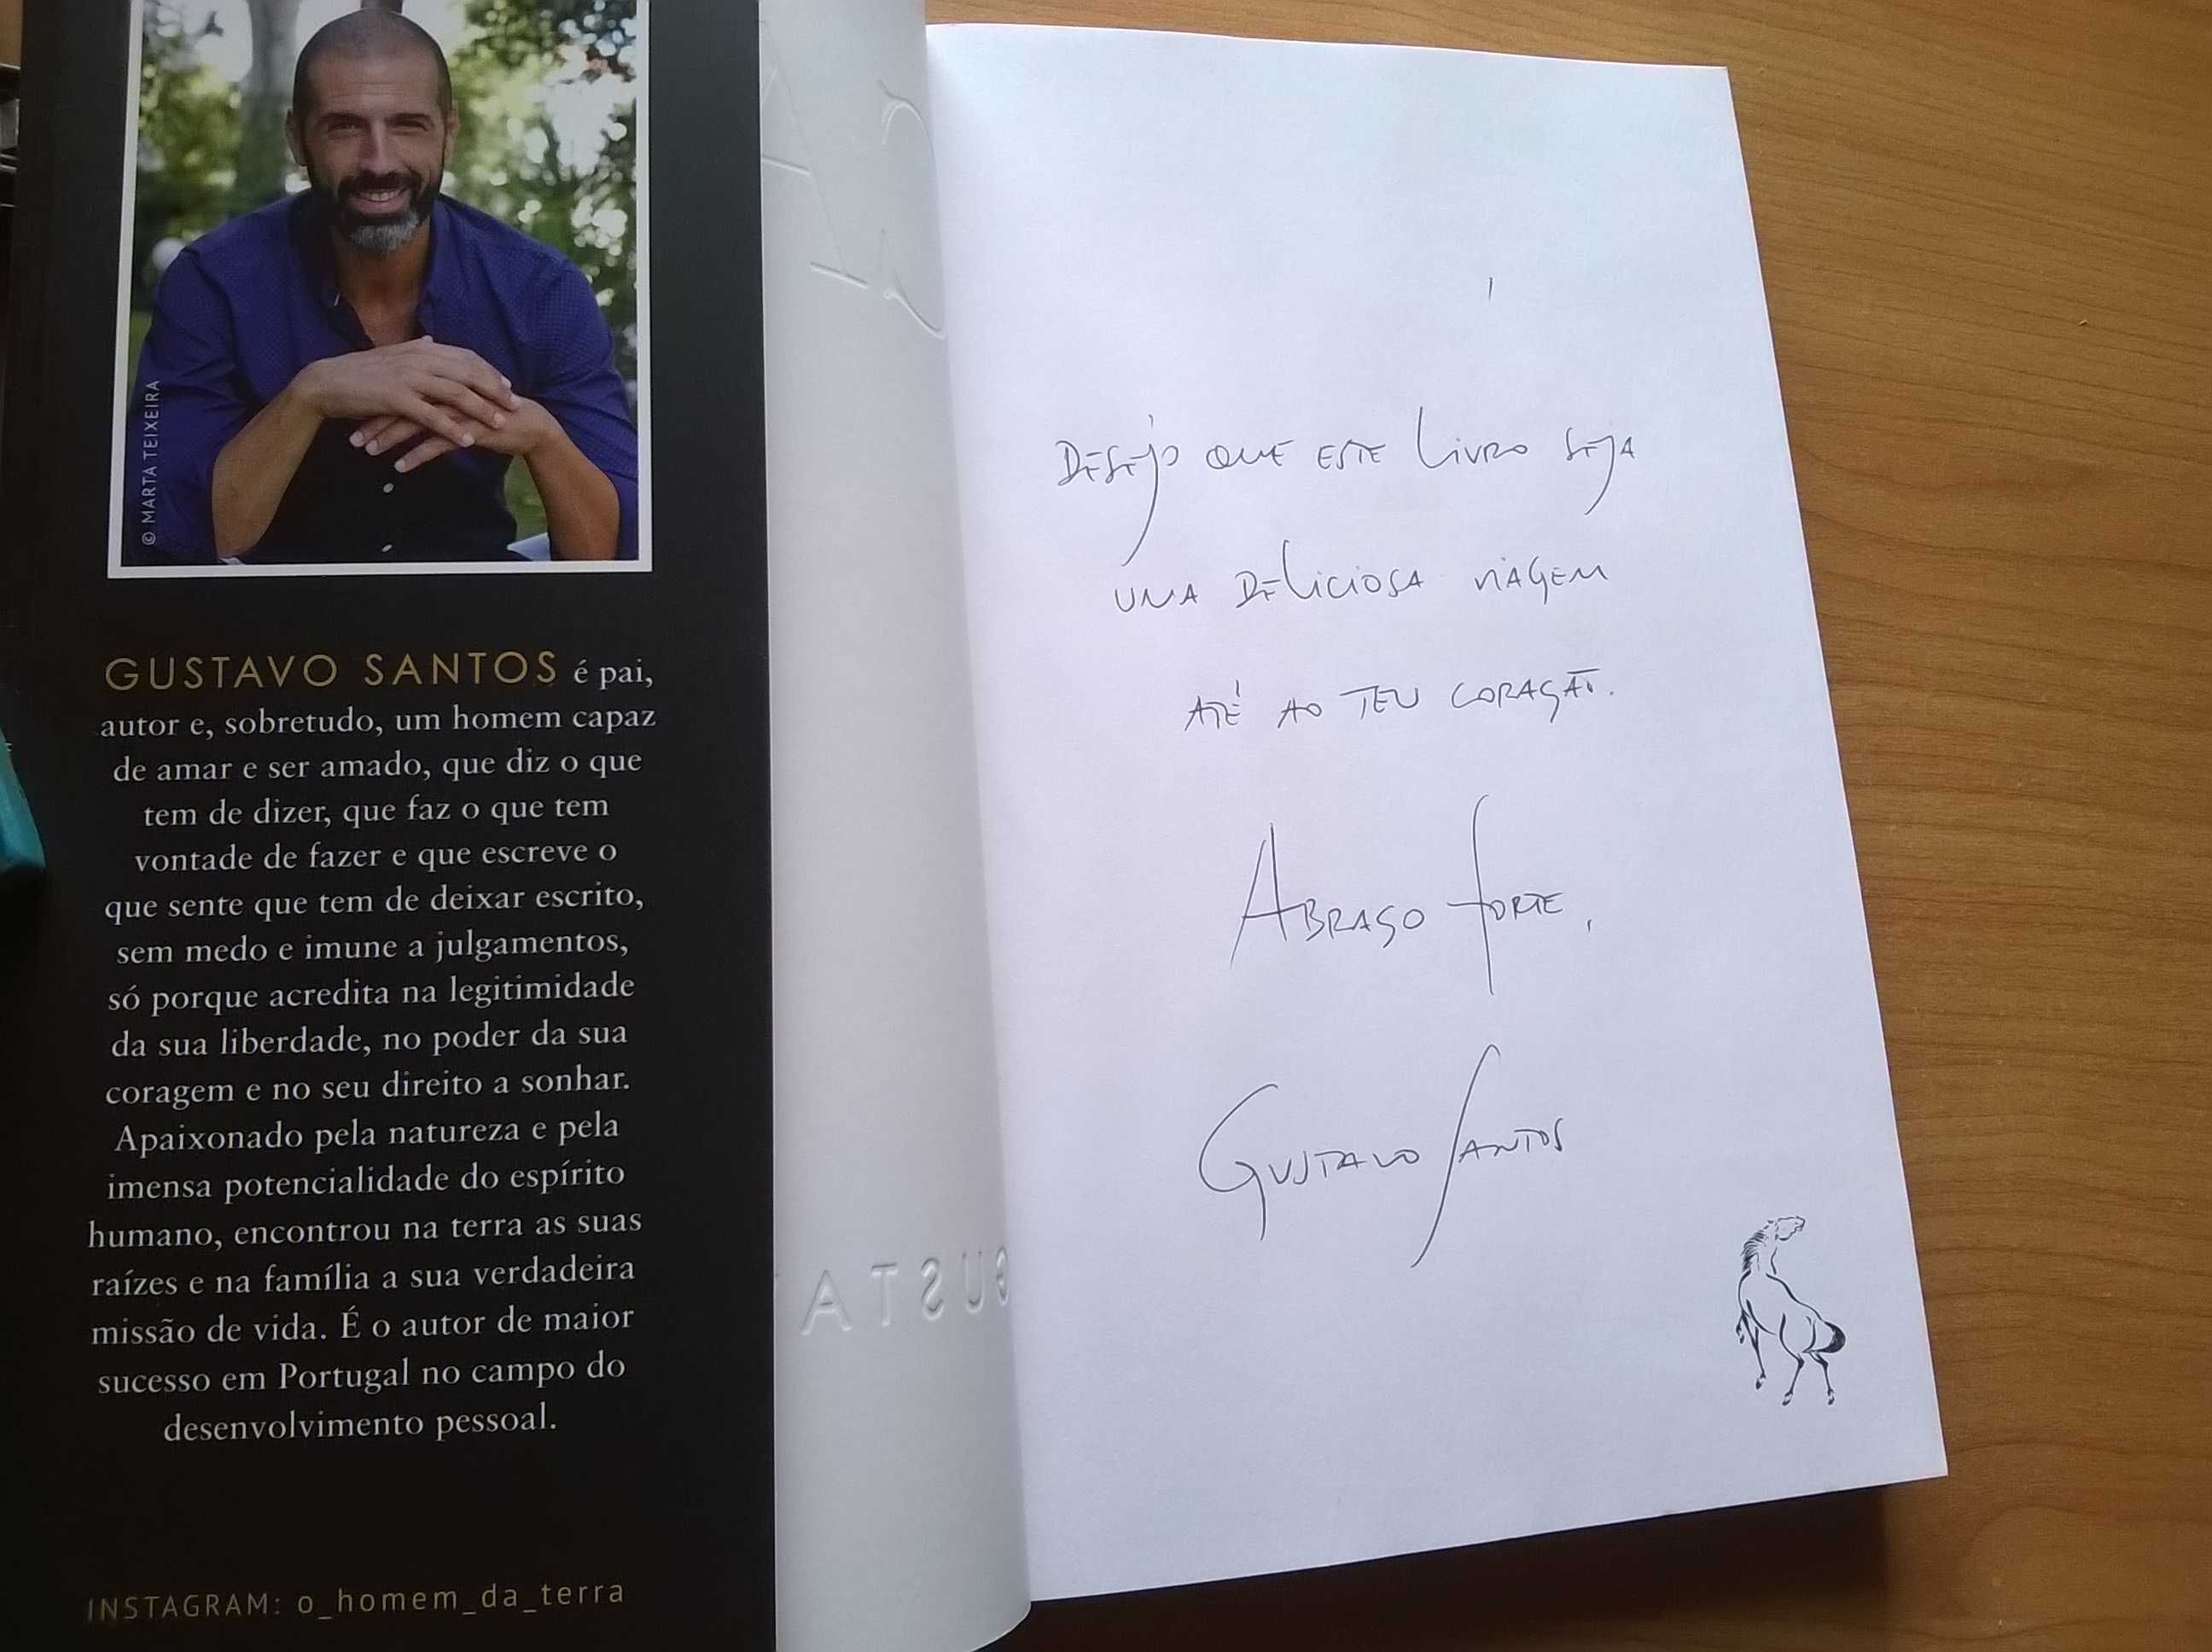 © MARTA TEIXEIRA
GUSTAVO SANTOS é pai,
autor e, sobretudo, um homem capaz
de amar e ser amado, que diz o que
tem de dizer, que faz o que tem
vontade de fazer e que escreve o
que sente que tem de deixar escrito,
sem medo e imune a julgamentos,
só porque acredita na legitimidade
da sua liberdade, no poder da sua
coragem e no seu direito a sonhar.
Apaixonado pela natureza e pela
imensa potencialidade do espírito
humano, encontrou na terra as suas
raízes e na família a sua verdadeira
missão de vida. É o autor de maior
sucesso em Portugal no campo do
desenvolvimento pessoal.
INSTAGRAM: o_homem_da_terra
GUSTA
DESEJO QUE ESTE LIVRO SEJA
UMA DELICIOSA VIAGEM
ATÉ AO TEU CORAÇÃO.
ABRAÇO FORTE,
GUSTAVO SANTOS